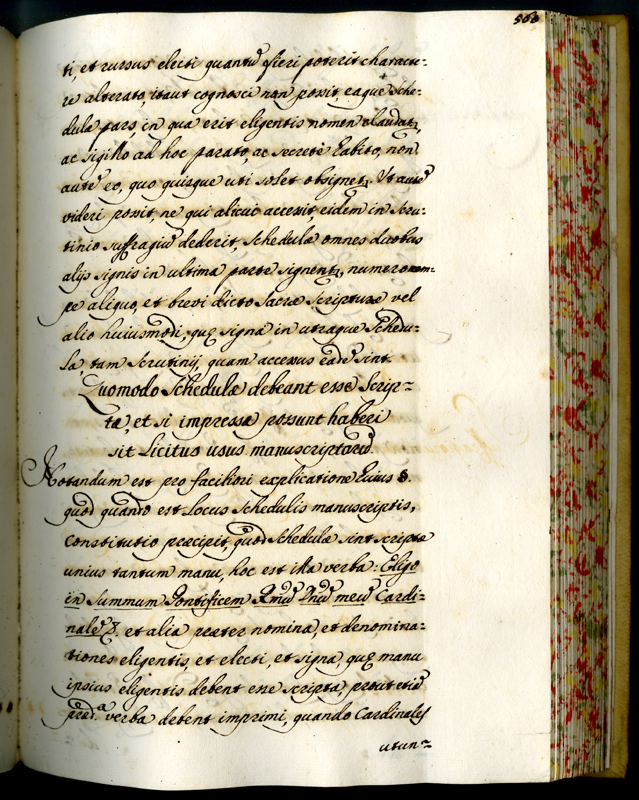 563
ti, et rursus electi quantũ fieri poterit characte-
re alterato, itaut cognosci non possit, eaque sche-
dulæ pars, in qua erit eligentis nomen claudat.,
ac sigillo ad hoc parato, ac secretè habito, non
autẽ eo, quo quisque uti solet obsignet., Ut autẽ
videri possit, ne qui alicui accessit, eidem in scru-
tinio suffragiũ dederit, schedulæ omnes duobus
alijs signis in ultima parte signent., numero nem-
pe aliquo, et brevi dicto Sacræ Scripturæ vel
alio huiusmodi, quę signa in utraque schedu-
la, tam scrutinij, quam accessus eadẽ sint.
Quomodo Schedulæ debeant esse scrip-
tæ, et si impressæ possunt haberi
sit licitus usus manuscriptarũ.
Notandum est pro faciliori explicatione huius §.
quod quando est locus schedulis manuscriptis,
Constitutio præcipit, quod schedulæ sint scriptæ
unius tantum manu, hoc est illa verba: Eligo
in Summum Pontificem Rm̃ũ Dñũ meũ Cardi-
nalẽ N. et alia præter nomina, et denomina-
tiones eligentis, et electi, et signa, quę manu
ipsius eligentis debent esse scripta, prout etiã
præd.ª verba debent imprimi, quando Cardinales
utun-